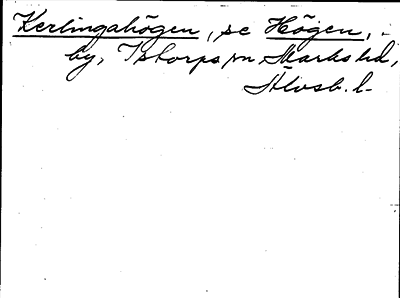 Kerlingahögen, se Högen,
by, Istorps sn, Marks hd,
Älvsb. l.